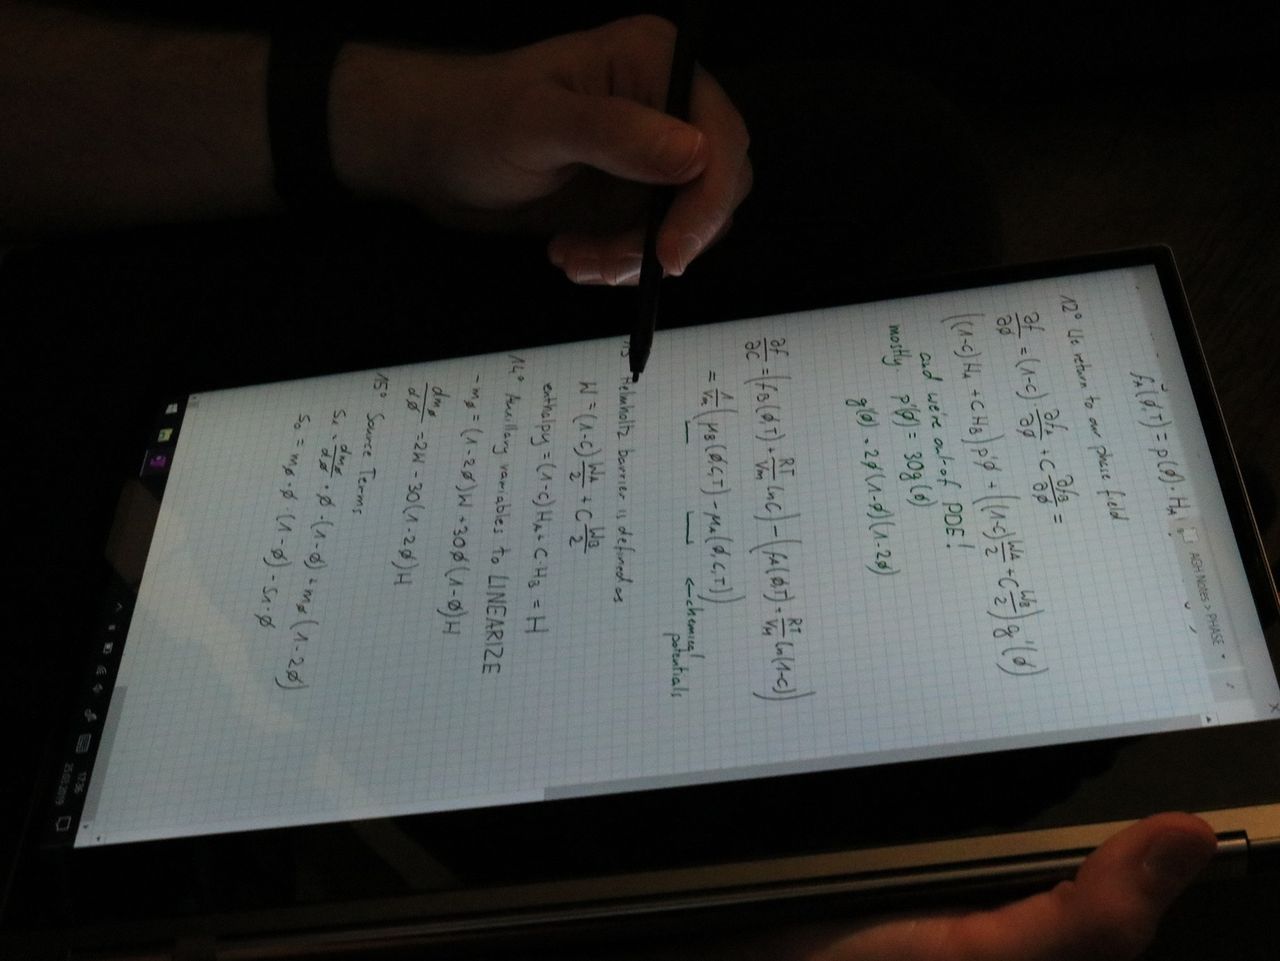 AGH Notes > PHASE
f_A(ϕ,T) = p(ϕ)·H_A
12° We return to our phase field
∂f/∂ϕ = (1-c) ∂f_A/∂ϕ + c ∂f_B/∂ϕ =
((1-c)H_A + cH_B)p'ϕ + ((1-c) W_A/2 + c W_B/2) g'(ϕ)
and we're out-of PDE!
mostly p'(ϕ) = 30g(ϕ)
g'(ϕ) = 2ϕ(1-ϕ)(1-2ϕ)
∂f/∂c = (f_B(ϕ,T) + RT/V_m ln c) - (f_A(ϕ,T) + RT/V_m ln(1-c))
= 1/V_m (μ_B(ϕ,C,T) - μ_A(ϕ,C,T))
← chemical
potentials
Helmholtz barrier is defined as
W = (1-c) W_A/2 + c W_B/2
enthalpy = (1-c)H_A + C·H_B = H
14° Auxillary variables to LINEARIZE
-m_ϕ = (1-2ϕ)W + 30ϕ(1-ϕ)H
dm_ϕ/dϕ = 2W - 30(1-2ϕ)H
15° Source Terms
S_1 = dm_ϕ/dϕ · ϕ·(1-ϕ) + m_ϕ(1-2ϕ)
S_0 = m_ϕ·ϕ(1-ϕ) - S_1·ϕ
17:36